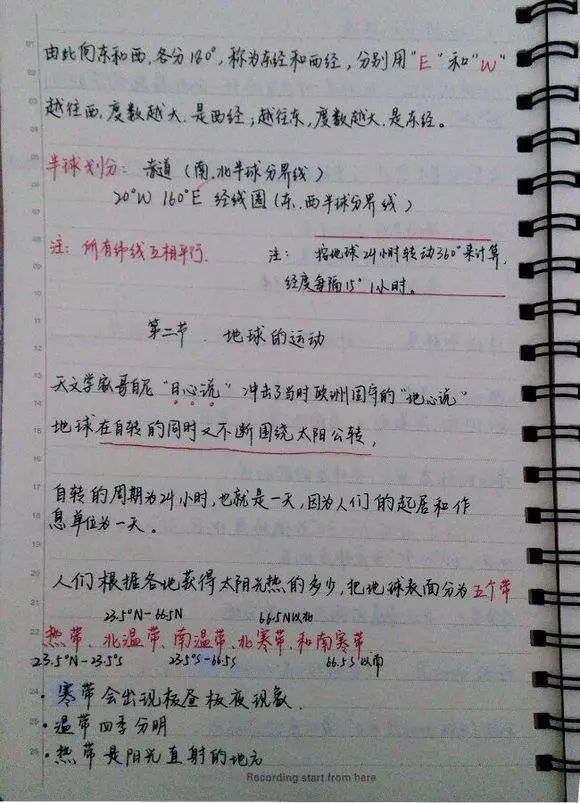 由此向东和西,各分180°,称为东经和西经,分别用"E"和"W"
越往西,度数越大.是西经;越往东,度数越大.是东经。
半球划分:赤道(南.北半球分界线)
20°W 160°E 经线圈(东.西半球分界线)
注:所有纬线互相平行.
注:按地球24小时转动360°来计算,
经度每隔15°1小时。
第二节.地球的运动
天文学家哥白尼"日心说"冲击了当时欧洲固守的"地心说"
地球在自转的同时又不断围绕太阳公转,
自转的周期为24小时,也就是一天,因为人们的起居和作
息单位为一天。
人们根据各地获得太阳光热的多少,把地球表面分为五个带
23.5°N-66.5N 66.5N以北
热带、北温带、南温带、北寒带、和南寒带
23.5°N-23.5°S 23.5°S-66.5S 66.5S以南
·寒带会出现极昼极夜现象.
·温带四季分明
·热带是阳光直射的地方
Recording start from here
01
02
03
04
05
06
07
08
09
10
11
12
13
14
15
16
17
18
19
20
21
22
24
25
26